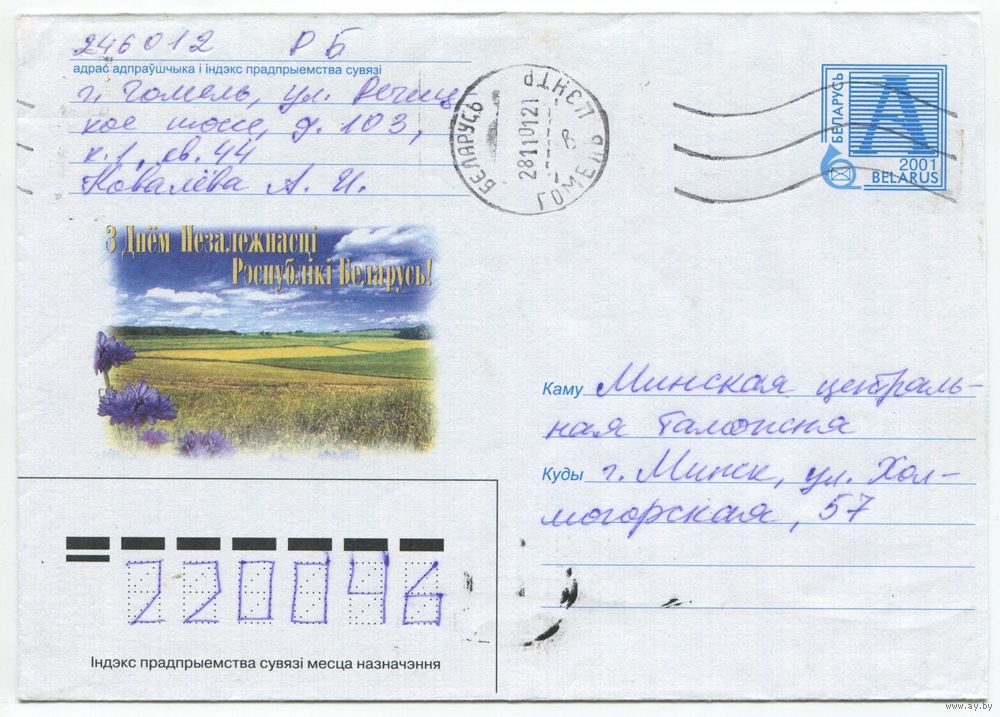 246012 РБ
адрас адпраўшчыка і індэкс прадпрыемства сувязі
г. Гомель, ул. Речиц-
кое шоссе, д. 103,
к.1, кв. 44
Ковалёва А. И.
БЕЛАРУСЬ
ЦЭНТР
28110121
В
ГОМЕЛЬ
БЕЛАРУСЬ
A
2001
BELARUS
З Днём Незалежнасці
Рэспублікі Беларусь!
Каму Минская централь-
ная таможня
Куды г. Минск, ул. Хол-
могорская, 57
220046
Індэкс прадпрыемства сувязі месца назначэння
www.ay.by